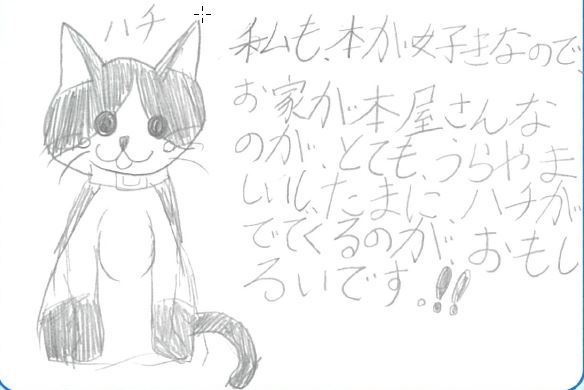 ハチ
私も、本が好きなので、
お家が本屋さんな
のが、とても、うらやま
しいし、たまに、ハチが
でてくるのが、おもし
ろいです。!!